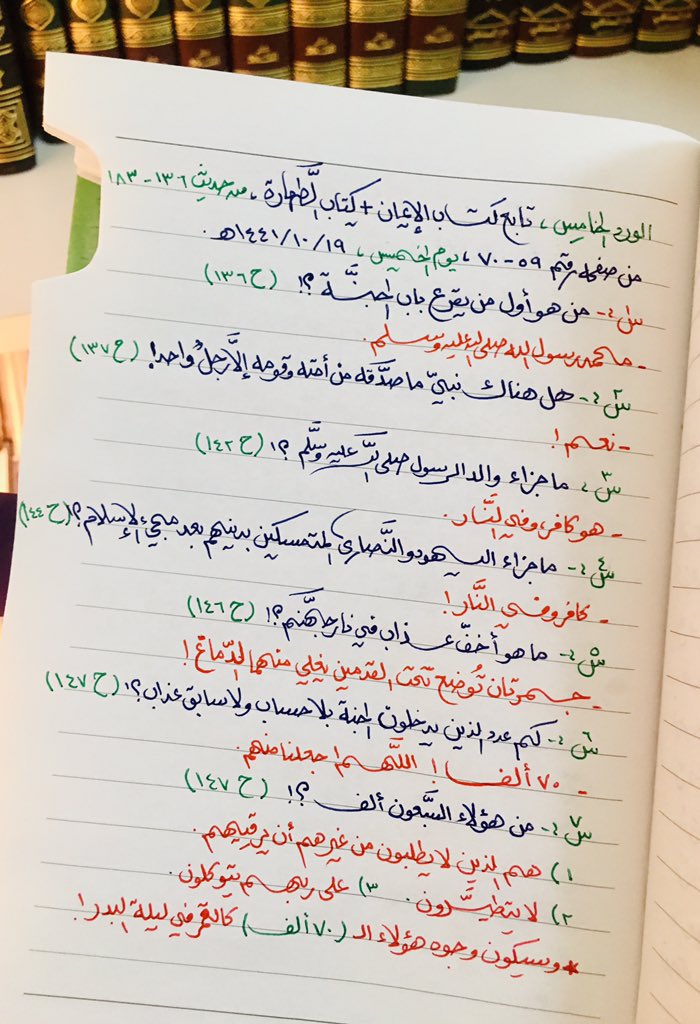 الورد الخامس، تابع كتاب الإيمان + كتاب الطَّهارة، من حديث ١٣٦ - ١٨٣
من صفحة رقم ٥٩ - ٧٠، يوم الخميس، ١٤٤١/١٠/١٩هـ.
س١:- من هو أول من يقرع باب الجنَّة؟! (ح١٣٦)
- محمد رسول الله صلى الله عليه وسلم.
س٢:- هل هناك نبيّ ما صدَّقه من أمته وقومه إلَّا رجلٌ واحد! (ح١٣٧)
- نعم!
س٣:- ما جزاء والد الرسول صلى الله عليه وسَّلم؟! (ح١٤٢)
- هو كافر، وفي النَّار.
س٤:- ما جزاء اليهود والنَّصارى المتمسكين بدينهم بعد مجيء الإسلام؟! (ح١٤٤)
- كافر وفي النَّار!
س٥:- ما هو أخفّ عذاب في نار جهَّنم؟! (ح١٤٦)
- جمرتان تُوضع تحت القدمين يغلي منهما الدّماغ!
س٦:- كم عدد الذين يدخلون الجنة بلا حساب ولا سابق عذاب؟! (ح١٤٧)
- ٧٠ ألف! اللَّهم اجعلنا منهم.
س٧:- من هؤلاء السَّبعون ألف؟! (ح١٤٧)
١) هم الذين لا يطلبون من غيرهم أن يرقيهم.
٢) لا يتطيَّرون. ٣) على ربهم يتوكلون.
* وسيكون وجوه هؤلاء الـ (٧٠ ألف) كالقمر في ليلة البدر!